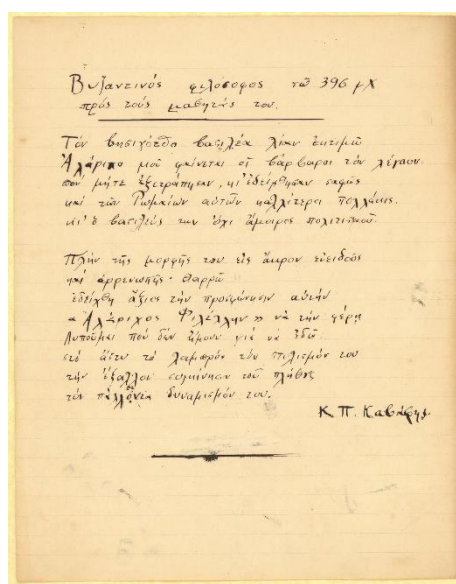 Βυζαντινός φιλόσοφος τῶ 396 μΧ
πρός τούς μαθητάς του.
Τόν βησιγότθο βασιλέα λίαν ἐκτιμῶ
Ἀλάριχο μοῦ φαίνεται οἱ βάρβαροι τόν λέγουν.
πού μήτε ἐξετράπησαν, κι' ἐδείχθησαν σαφῶς
καί τῶν Ρωμαίων αὐτῶν καλλίτεροι πολλάκις.
κι' ὁ βασιλεύς των ὄχι ἄμοιρος πολιτισμοῦ.
Πλήν τῆς μορφῆς του εἰς ἄκρον εὐειδοῦς
καί ἀρρενωπῆς - θαρρῶ
ἐδείχθη ἄξιος τήν προσφώνησιν αὐτήν
« Ἀλάριχος Φιλέλλην » νά τήν φέρῃ
Λυποῦμαι πού δέν ἤμουν γιά νά ἰδῶ
στό ἄστυ τό λαμπρόν τόν στολισμόν του
τήν ἔξαλλον συγκίνησιν τοῦ πλήθους
τόν δυναμισμόν του.
Κ. Π. Καβάφης.